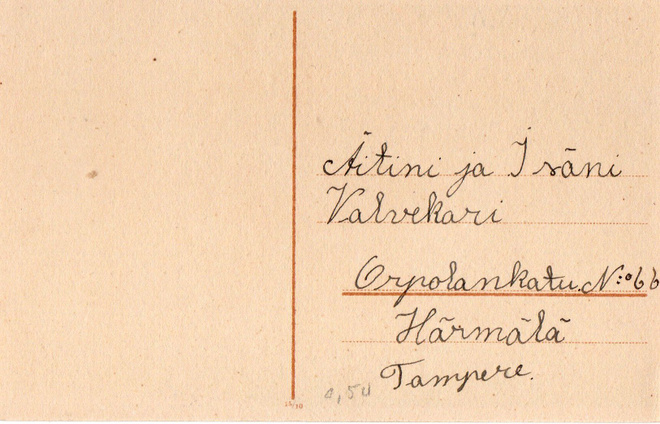 Äitini ja Isäni
Valvekari
Orpolankatu. N:o 66
Härmälä
Tampere.